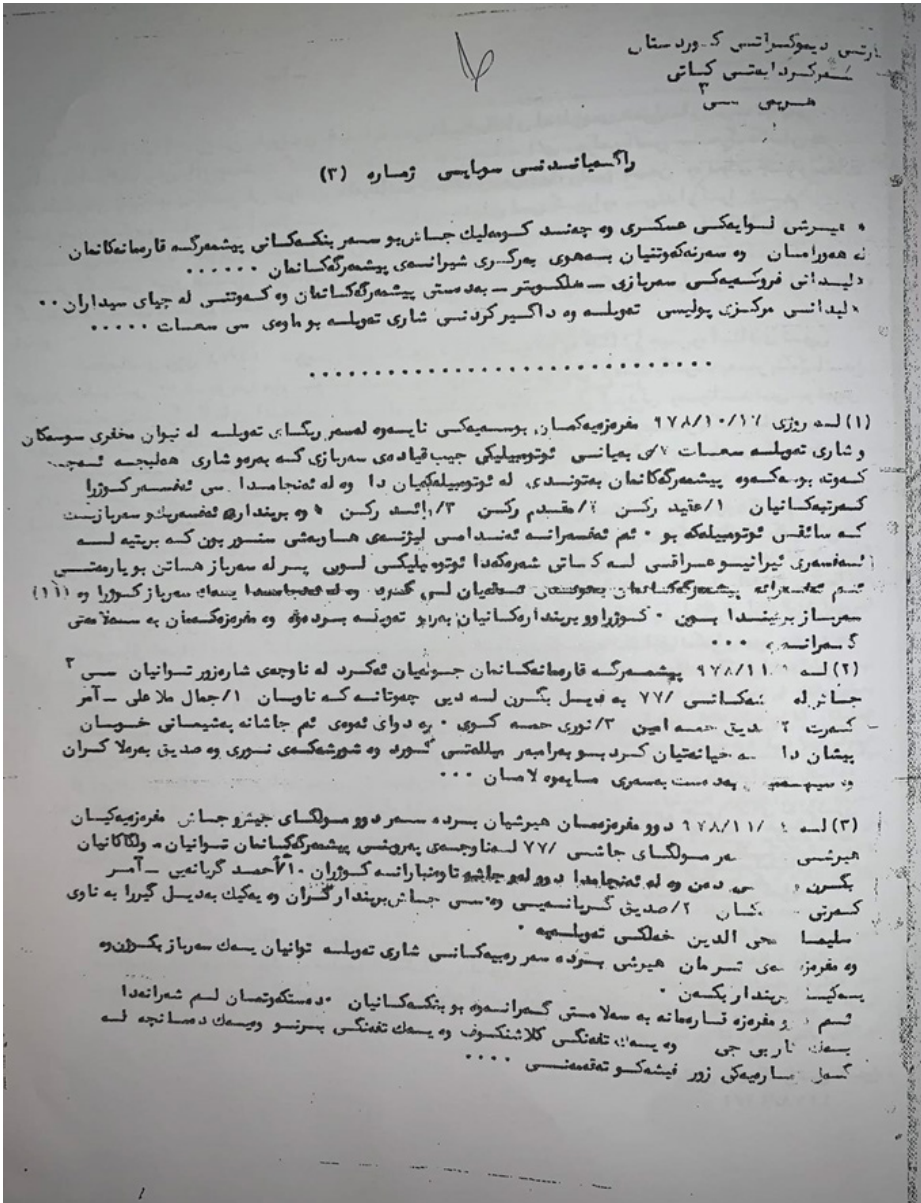 پارتی دیموکراتی کوردستان
سەرکردایەتی کاتی
هەریمی سی ٣
راگەیاندنی سوپایی ژمارە (٣)
* هیرشی لیوایەکی عسکری وە چەند کومەلیك جاش بو سەر بنکەکانی پیشمەرگە قارەمانەکانمان
لە هەورامان وە سەرنەکەوتنیان بەهوی بەرگری شیرانەی پیشمەرگەکانمان ......
* لیدانی فروکەیەکی سەربازی ـ هلکوپتر ـ بەدەستی پیشمەرگەکانمان وە کەوتنی لە چیای سیداران ..
* لیدانی مرکزی پولیسی تەویلە وە داگیرکردنی شاری تەویلە بو ماوەی سی سعات .....
(١) لە روژی ٩٧٨/١٠/١٦ مفرەزەیەکمان بوسەیەکی نایەوە لەسەر ریگای تەویلە لە نیوان مخفری سوسەکان
و شاری تەویلە سعات بەیانی ئوتومبیلیکی جیب قیادەی سەربازی کە بەرەو شاری هەلبجە ئەچو
کەوتە بوسەکەوە پیشمەرگەکانمان بەتوندی لە ئوتومبیلەکەیان دا وە لە ئەنجامدا سی ئەفسەر کوژرا
کەرتەکانیان ١/عقید رکن ٢/مقدم رکن ٣/رائد رکن * وە بریندار ئەفسەریك سەربازیت
کە سائقی ئوتومبیلەکە بو * ئەم ئەفسەرانە ئەندامی لیژنەی هاوبەشی سنور بون کە بریتیە لە
ئەفسەری ئیرانی و عراقی لە کاتی شەرەکەدا ئوتومبیلیکی لوری پر لە سەرباز هاتن بو یارمەتی
ئەم ئەفسەرانە پیشمەرگەکانمان تەقەیان لی کرد وە لە ئەنجامدا یەك سەرباز کوژرا وە (١١)
سەرباز بریندا بون * کوژراو و بریندارەکانیان بەرەو تەویلە بردەوە وە مفرەزەکەمان بە سەلامەتی
گەرانەوە ...
(٢) لە ٩٧٨/١١ پیشمەرگە قارەمانەکانمان جەولەیان ئەکرد لە ناوچەی شارەزور توانیان سی ٣
جاش لە ٧٧/ بە دیل بگرن لە دیی چەوتانە کە ناویان ١/جمال ملا علی ـ آمر
کەرت ٢ صدیق حمە امین ٣/نوری حمە کوی * وە دوای ئەوەی ئەم جاشانە پەشیمانی خویان
پیشان دا خیانەتیان کرد بو بەرامبەر میللەتی کورد وە شورشەکەی نوری وە صدیق بەرەلا کران
وە بەدەست بەسەری مایەوە لامان ...
(٣) لە ٩٧٨/١١/ دوو مفرەزەمان هیرشیان بردە سەر دوو مولگای جیش و جاش مفرەزەیەکیان
هیرشی سەر مولگای جاشی ٧٧/ لەناوچەی پیشمەرگەکانمان توانیان مولگاکانیان
بگرن دەن وە لە ئەنجامدا دوو لەو جاشە تاوانبارانە کوژران ١/أحمد گریانەیی ـ آمر
کەرتی ٢/صدیق گریانەیی وە سی جاش بریندار کران وە یەکیك بەدیل گیرا بە ناوی
سلیمان محی الدین خەلکی تەویلەیە *
وە مفرەزەی تر مان هیرشی بردە سەر رەبیەکانی شاری تەویلە توانیان یەك سەرباز بکوژن وە
یەکیك بریندار بکەن *
ئەم دوو مفرەزە قارەمانە بە سەلامەتی گەرانەوە بو بنکەکانیان * دەستکەوتمان لەم شەرانەدا
یەك ئار بی جی وە یەك تفەنگی کلاشنکوف وە یەك تفەنگی برنو وەیەك دەمانچە لە
گەل ژمارەیەکی زور فیشەك و تەقەمەنی ....